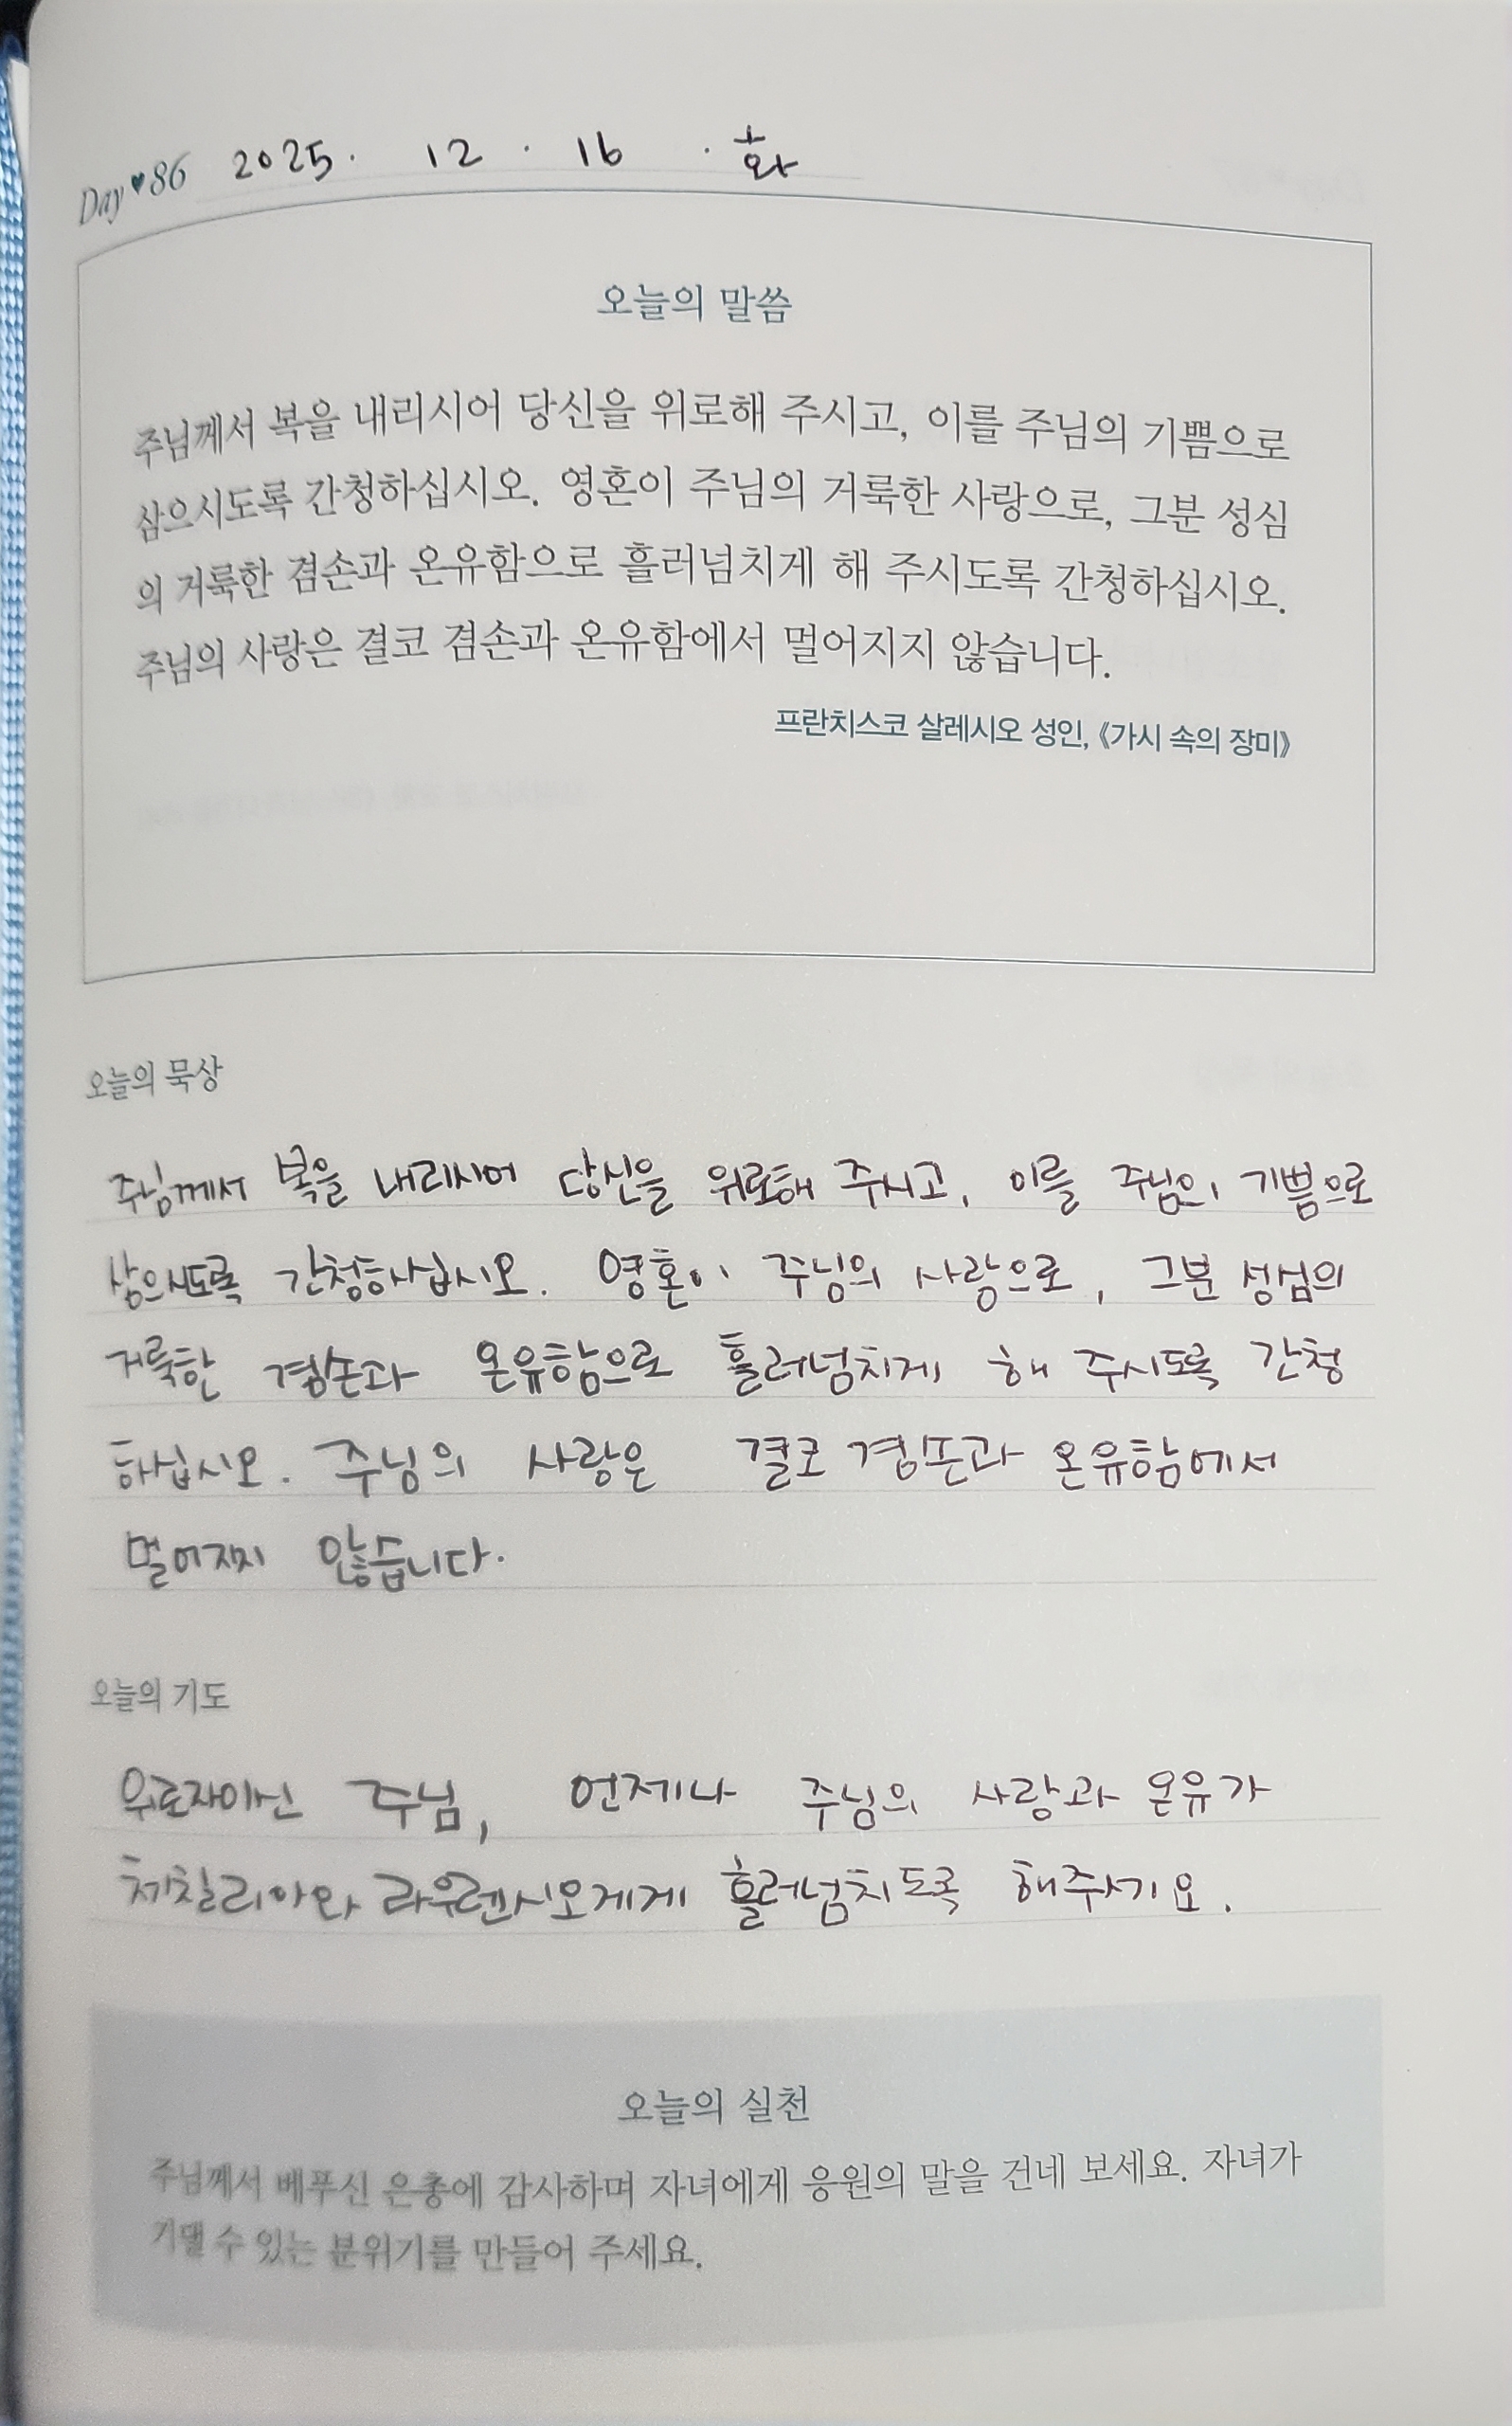 Day♥86 2025. 12. 16. 화
오늘의 말씀
주님께서 복을 내리시어 당신을 위로해 주시고, 이를 주님의 기쁨으로
삼으시도록 간청하십시오. 영혼이 주님의 거룩한 사랑으로, 그분 성심
의 거룩한 겸손과 온유함으로 흘러넘치게 해 주시도록 간청하십시오.
주님의 사랑은 결코 겸손과 온유함에서 멀어지지 않습니다.
프란치스코 살레시오 성인, 《가시 속의 장미》
오늘의 묵상
주님께서 복을 내리시어 당신을 위로해 주시고, 이를 주님의 기쁨으로
삼으시도록 간청하십시오. 영혼이 주님의 사랑으로, 그분 성심의
거룩한 겸손과 온유함으로 흘러넘치게 해 주시도록 간청
하십시오. 주님의 사랑은 결코 겸손과 온유함에서
멀어지지 않습니다.
오늘의 기도
위로자이신 주님, 언제나 주님의 사랑과 온유가
체칠리아와 라우렌시오에게 흘러넘치도록 해주시기요.
오늘의 실천
주님께서 베푸신 은총에 감사하며 자녀에게 응원의 말을 건네 보세요. 자녀가
기댈 수 있는 분위기를 만들어 주세요.